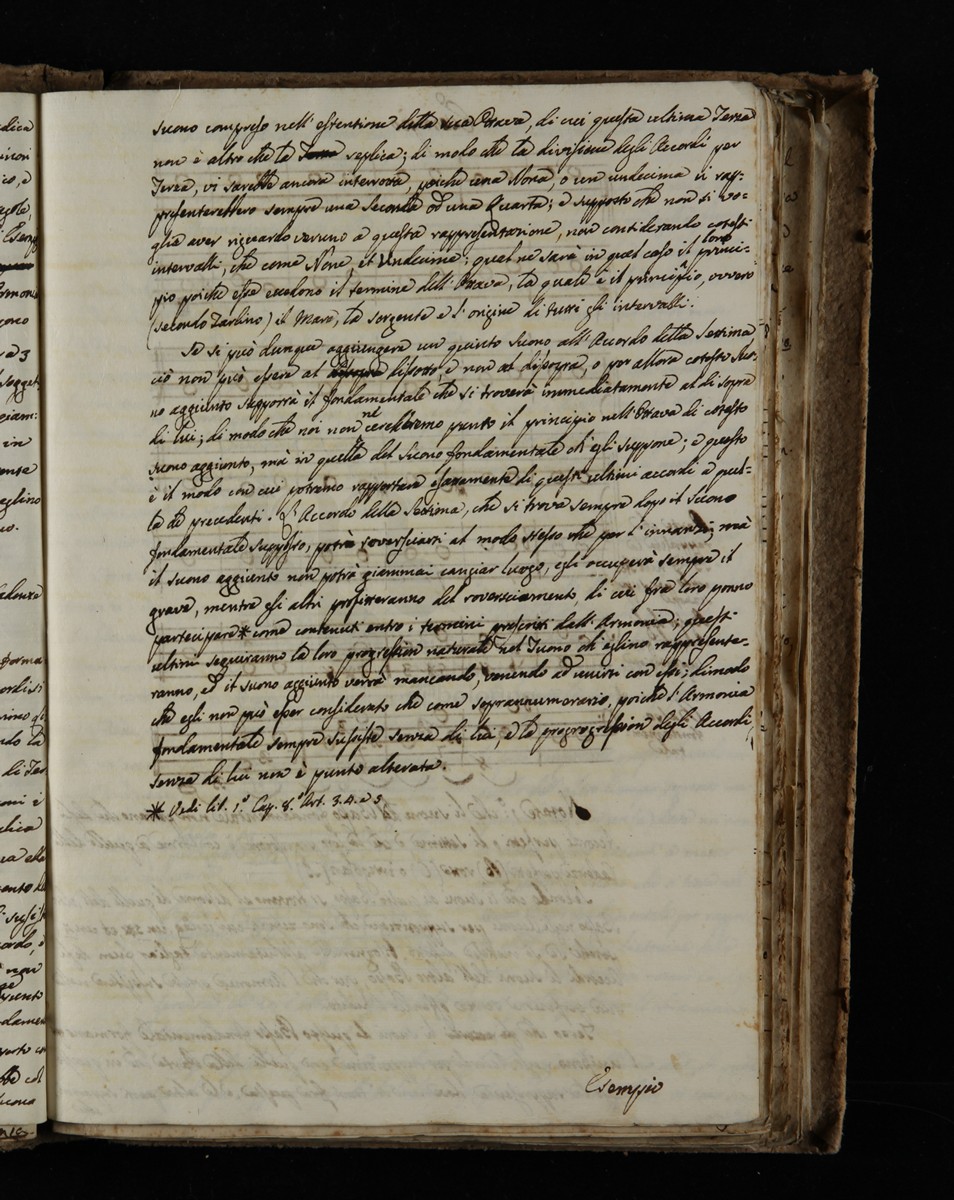 suono compreso nell'estentione della sua Ottava, di cui questa ultima Terza
non è altro che la Terza replica; di modo che la divisione degli Accordi per
Terza, vi sarebbe ancora interrotta, poiche una Nona, o un undecima ci rap-
presenterebbero sempre una Seconda od una Quarta; e supposto che non si vo-
glia aver riguardo veruno a questa rappresentazione, non considerando cotesti
intervalli, che come None, et Undecime; qual ne sarà in qual caso il loro princi-
pio poiche esse excedono il termine dell'Ottava, la quale è il principio, ovvero
(secondo Zarlino) il Mare, la sorgente e l'origine di tutti gli intervalli.
Se si può dunque aggiungere un quinto suono all'Accordo della Settima
ciò non può essere al disotto, e non al disopra, o per allora cotesto Suo-
no aggiunto supporrà il fondamentale che si troverà immediatamente al di sopra
di lui; di modo che noi non ne cercheremo punto il principio nell'Ottava di cotesto
suono aggiunto, mà in quella del suono fondamentale ch'egli suppone; e questo
è il modo con cui potremo rapportare esattamente di questi ultimi accordi a quel-
la de precedenti. L'Accordo della Settima, che si trova sempre dopo il suono
fondamentale supposto, potrà roversciarsi al modo stesso che per l'innanzi; mà
il suono aggiunto non potrà giammai cangiar luogo, egli occuperà sempre il
grave, mentre gli altri profitteranno del roversciamento, di cui fra loro ponno
partecipare* come contenuti entro i termini prescritti dall'Armonia; questi
ultimi seguiranno la loro progression naturale nel Tuono ch'eglino rappresente-
ranno, ed il suono aggiunto verrà mancando, venendo ad unirsi con essi; dimodo
che egli non può esser considerato che come soprannumerario, poiche l'Armonia
fondamentale sempre sussiste senza di lui, e la progrogression degli Accordi
senza di lui non è punto alterata.
* Vedi lib. 1.º Cap. 8.º Art. 3. 4. e 5
Esempio